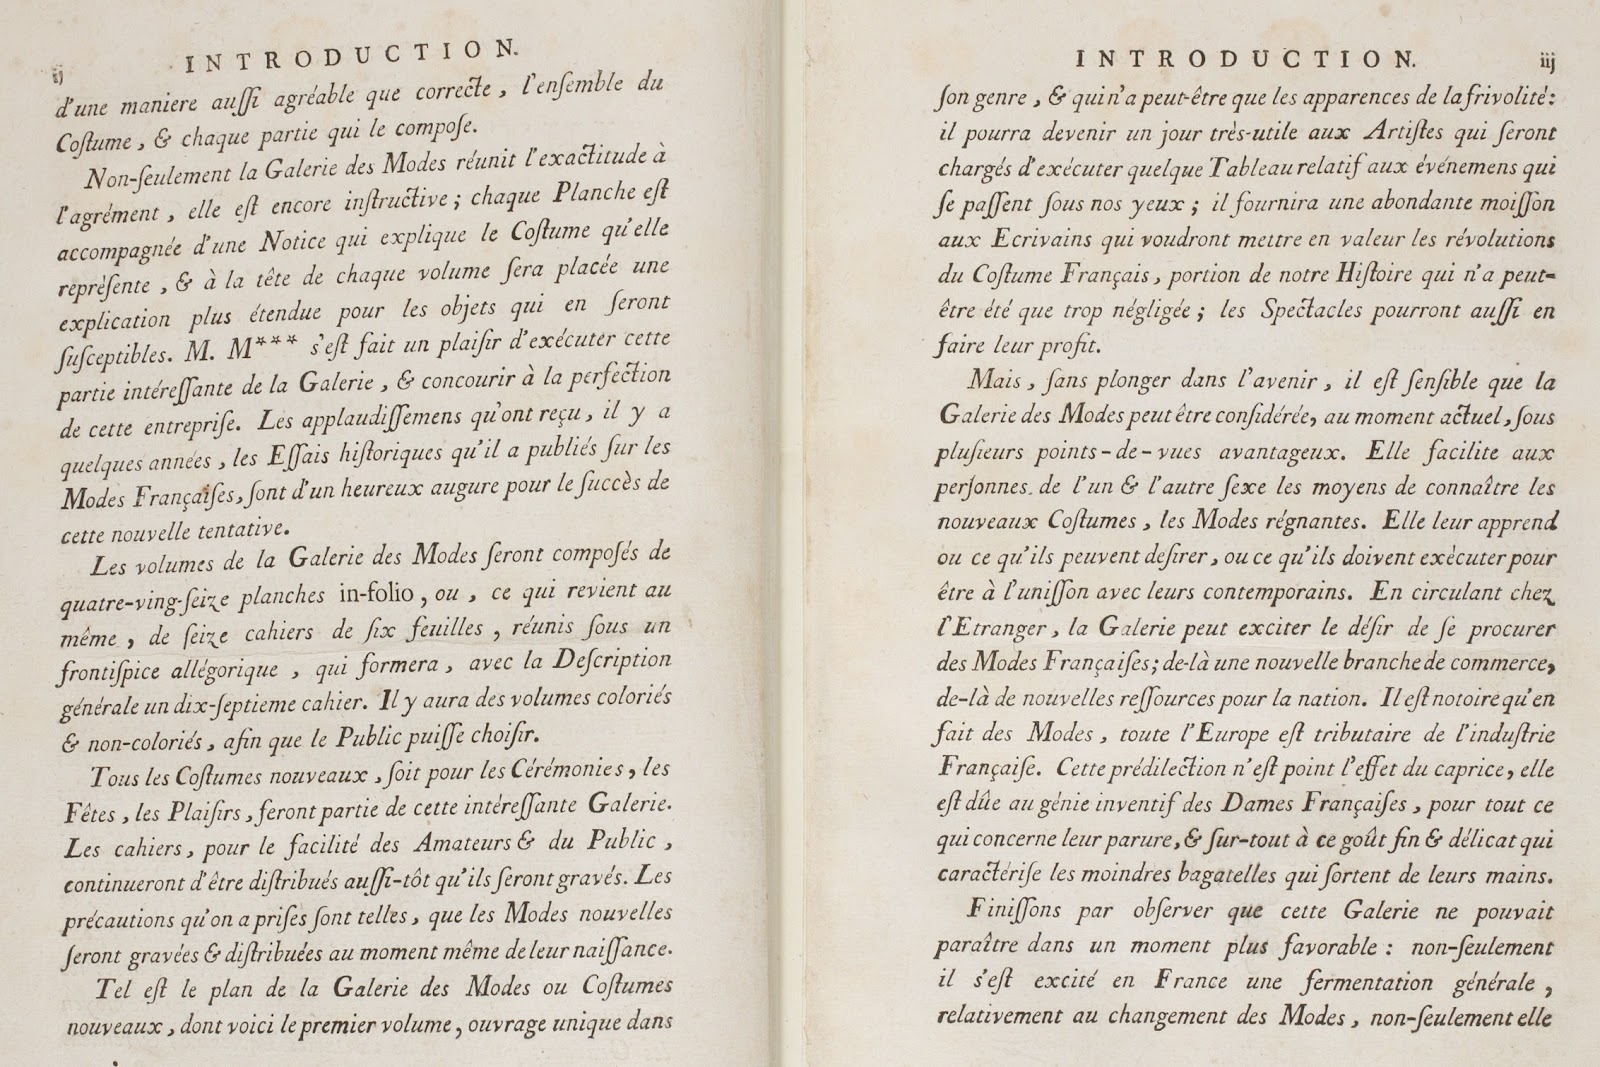 ij
INTRODUCTION.
d'une maniere auſſi agréable que correcte, l'enſemble du
Coſtume, & chaque partie qui le compoſe.
Non-ſeulement la Galerie des Modes réunit l'exactitude à
l'agrément, elle eſt encore inſtructive; chaque Planche eſt
accompagnée d'une Notice qui explique le Coſtume qu'elle
repréſente, & à la tête de chaque volume ſera placée une
explication plus étendue pour les objets qui en ſeront
ſuſceptibles. M. M*** s'eſt fait un plaiſir d'exécuter cette
partie intéreſſante de la Galerie, & concourir à la perfection
de cette entrepriſe. Les applaudiſſemens qu'ont reçu, il y a
quelques années, les Eſſais hiſtoriques qu'il a publiés ſur les
Modes Françaiſes, ſont d'un heureux augure pour le ſuccès de
cette nouvelle tentative.
Les volumes de la Galerie des Modes ſeront compoſés de
quatre-ving-ſeize planches in-folio, ou, ce qui revient au
même, de ſeize cahiers de ſix feuilles, réunis ſous un
frontiſpice allégorique, qui formera, avec la Deſcription
générale un dix-ſeptieme cahier. Il y aura des volumes coloriés
& non-coloriés, afin que le Public puiſſe choiſir.
Tous les Coſtumes nouveaux, ſoit pour les Cérémonies, les
Fêtes, les Plaiſirs, feront partie de cette intéreſſante Galerie.
Les cahiers, pour le facilité des Amateurs & du Public,
continueront d'être diſtribués auſſi-tôt qu'ils ſeront gravés. Les
précautions qu'on a priſes ſont telles, que les Modes nouvelles
ſeront gravées & diſtribuées au moment même de leur naiſſance.
Tel eſt le plan de la Galerie des Modes ou Coſtumes
nouveaux, dont voici le premier volume, ouvrage unique dans
INTRODUCTION.
iij
ſon genre, & qui n'a peut-être que les apparences de la frivolité:
il pourra devenir un jour très-utile aux Artiſtes qui ſeront
chargés d'exécuter quelque Tableau relatif aux événemens qui
ſe paſſent ſous nos yeux; il fournira une abondante moiſſon
aux Ecrivains qui voudront mettre en valeur les révolutions
du Coſtume Français, portion de notre Hiſtoire qui n'a peut-
être été que trop négligée; les Spectacles pourront auſſi en
faire leur profit.
Mais, ſans plonger dans l'avenir, il eſt ſenſible que la
Galerie des Modes peut être conſidérée, au moment actuel, ſous
pluſieurs points-de-vues avantageux. Elle facilite aux
perſonnes de l'un & l'autre ſexe les moyens de connaître les
nouveaux Coſtumes, les Modes régnantes. Elle leur apprend
ou ce qu'ils peuvent deſirer, ou ce qu'ils doivent exècuter pour
être à l'uniſſon avec leurs contemporains. En circulant chez
l'Etranger, la Galerie peut exciter le déſir de ſe procurer
des Modes Françaiſes; de-là une nouvelle branche de commerce,
de-là de nouvelles reſſources pour la nation. Il eſt notoire qu'en
fait des Modes, toute l'Europe eſt tributaire de l'induſtrie
Françaiſe. Cette prédilection n'eſt point l'effet du caprice, elle
eſt dûe au génie inventif des Dames Françaiſes, pour tout ce
qui concerne leur parure, & ſur-tout à ce goût fin & délicat qui
caractériſe les moindres bagatelles qui ſortent de leurs mains.
Finiſſons par obſerver que cette Galerie ne pouvait
paraître dans un moment plus favorable: non-ſeulement
il s'eſt excité en France une fermentation générale,
relativement au changement des Modes, non-ſeulement elle